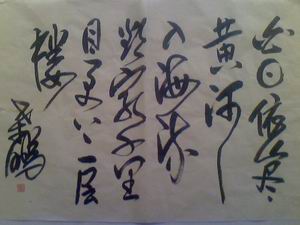 白日依山尽
黄河
入海流
欲穷千里
目更上一层
楼